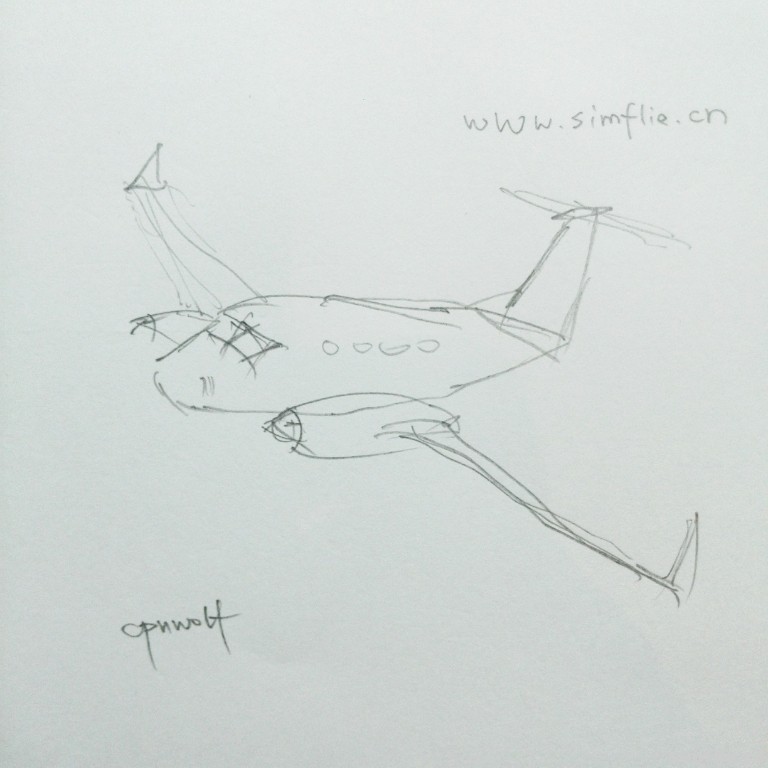 www.simflie.cn
cpnwolf